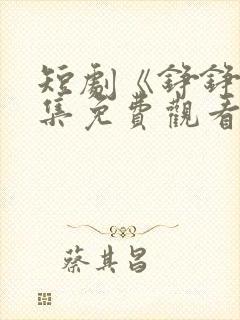 短劇《錚錚
集免費觀看
蔡其昌